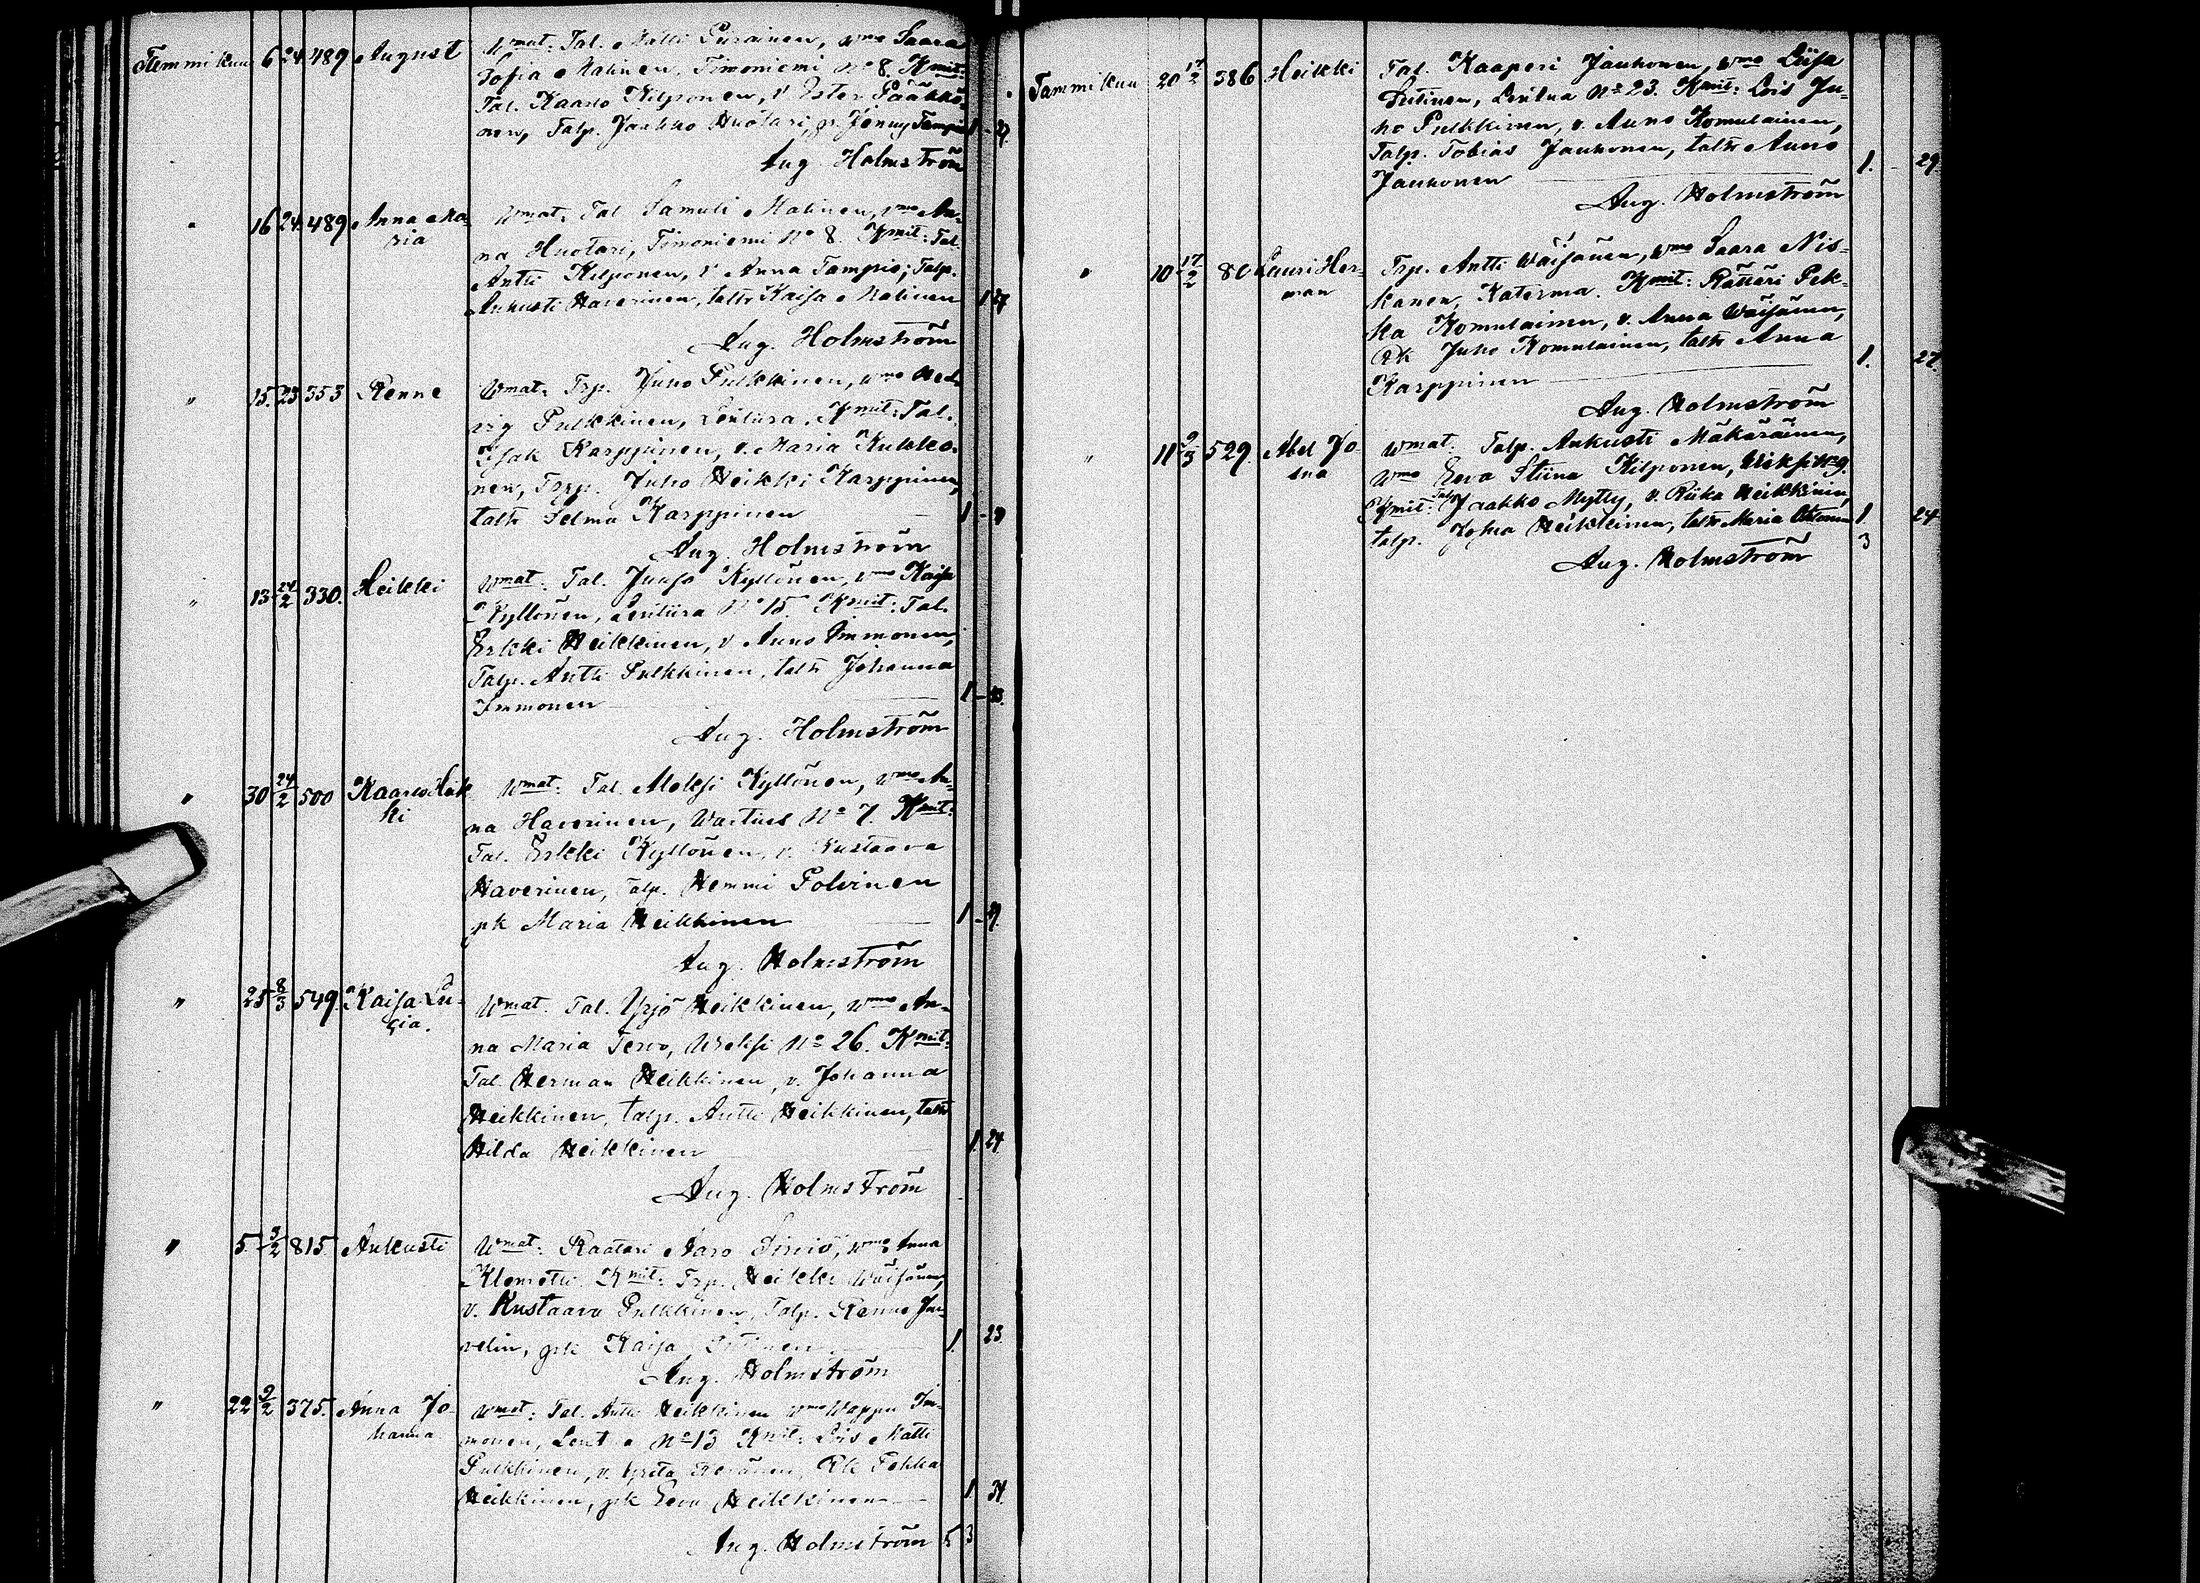 Tammikuu 6 24 489 August Wmat. Tal. Matti Piirainen, vmo Saara
Sofia Malinen, Timoniemi No 8. Kmit:
Tal. Kaarlo Kilponen, v. Ester Pääkkö-
nen, Talp. Jaakko Huotari, p. Jenny Tampio 1 - 27.
Aug. Holmström
" 16 24 489 Anna Ma- Wmat. Tal. Samuli Malinen, vmo An-
ria na Huotari, Timoniemi No 8. Kmit: Tal.
Antti Kilponen, v. Anna Tampio; Talp.
Aukusti Haverinen, taltr Kaisa Malinen 1 27
Aug. Holmström
" 15. 23 353 Renne Wmat. Trp. Juho Pulkkinen, vmo Hed-
vig Pulkkinen, Lentiira. Kmit: Tal.
Isak Karppinen, v. Maria Kukko-
nen, Trp. Juho Heikki Karppinen,
taltr Selma Karppinen 1
Aug. Holmström
" 13 24/2 330. Heikki Wmat. Tal. Juuso Kyllönen, vmo Kaisa
Kyllönen, Lentiira No 15. Kmit: Tal.
Erkki Heikkinen, v. Auno Immonen,
Talp. Antti Pulkkinen, taltr Johanna
Immonen 1 - 33.
Aug. Holmström
" 30 24/2 500 Kaarlo Heik- Wmat. Tal. Aleksi Kyllönen, vmo An-
ki na Haverinen, Wartius No 7. Kmit:
Tal. Erkki Kyllönen, v. Kustaava
Haverinen, Talp. Hemmi Polvinen
pk Maria Heikkinen 1
Aug. Holmström
" 25 8/3 549. Kaisa Lu- Wmat. Tal. Yrjö Heikkinen, vmo An-
cia. na Maria Tervo, Wieksi No 26. Kmit:
Tal. Herman Heikkinen, v. Johanna
Heikkinen, talp. Antti Heikkinen, taltr
Hilda Heikkinen 1. 24
Aug. Holmström
" 5. 3/2 815 Aukusti Wmat: Räätäri Aaro Sirviö, vmo Anna
Klemetti. Kmit: Trp. Heikki Wäisänen,
v. Kustaava Pulkkinen, Talp. Renne Ju-
velin, pk Kaisa 1. 23.
Aug. Holmström
" 22 9/2 375. Anna Jo- Wmat: Tal. Antti Heikkinen vmo Wappu Im-
hanna monen, No 13 Kmit: Lois Matti
Pulkkinen, v. Greta Keränen, Rk Pekka
Heikkinen, pk Eeva Heikkinen 1. 31.
Aug. Holmström 5 3
Tammikuu 20 17/2 386 Heikki Tal. Kaaperi Jauhonen, vmo Liisa
Lentua No 23. Kmit: Lois Ju-
ho Pulkkinen, v. Auno Komulainen,
Talp. Tobias Jauhonen, taltr Auno
Jauhonen 1. 29.
Aug. Holmström
" 10 17/2 80 Lauri Her- Trp. Antti Wäisänen, vmo Saara Nis-
man kanen, Katerma. Kmit: Räätäri Pek-
ka Komulainen, v. Anna Wäisänen,
Rk Juho Komulainen, taltr Anna
Karppinen 1. 27.
Aug. Holmström
" 11 9/3 529. Abel Jo- Wmat. Talp. Aukusti Mäkäräinen,
sua vmo Eeva Stiina Kilponen, Wieksi No 9.
Kmit: Tal. Jaakko Mylly, v. Riika Heikkinen,
talp. Josua Heikkinen, taltr Maria 1. 24
3
Aug. Holmström